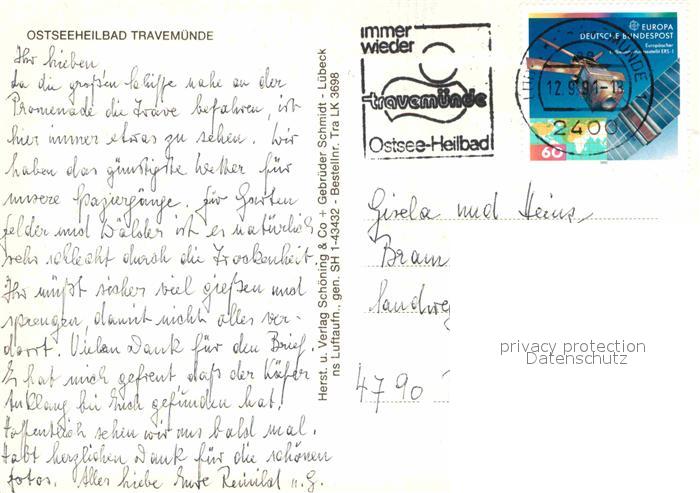 OSTSEEHEILBAD TRAVEMÜNDE
Ihr Lieben
da die großen Schiffe nahe an der
Promenade die Trave befahren, ist
hier immer etwas zu sehen. Wir
haben das günstigste Wetter für
unsere Spaziergänge. Für Garten
Felder und Wälder ist es natürlich
sehr schlecht durch die Trockenheit
Ihr müßt sicher viel gießen und
sprengen, damit nicht alles ver-
dorrt. Vielen Dank für den Brief.
Es hat mich gefreut daß der Käfer
Anklang bei Euch gefunden hat.
Hoffentlich sehen wir uns bald mal.
Habt herzlichen Dank für die schönen
Fotos. Alles Liebe Eure Reinhld u. G.
Herst. u. Verlag Schöning & Co + Gebrüder Schmidt - Lübeck
ns Luftaufn., gen. SH 1-43432 - Bestellnr. Tra LK 3698
immer
wieder
travemünde
Ostsee-Heilbad
EUROPA
DEUTSCHE BUNDESPOST
Europäischer
ERS-1
60
12.9.91-18
2400
Gisela und Heinz
Bram
Sandweg
4790
privacy protection
Datenschutz